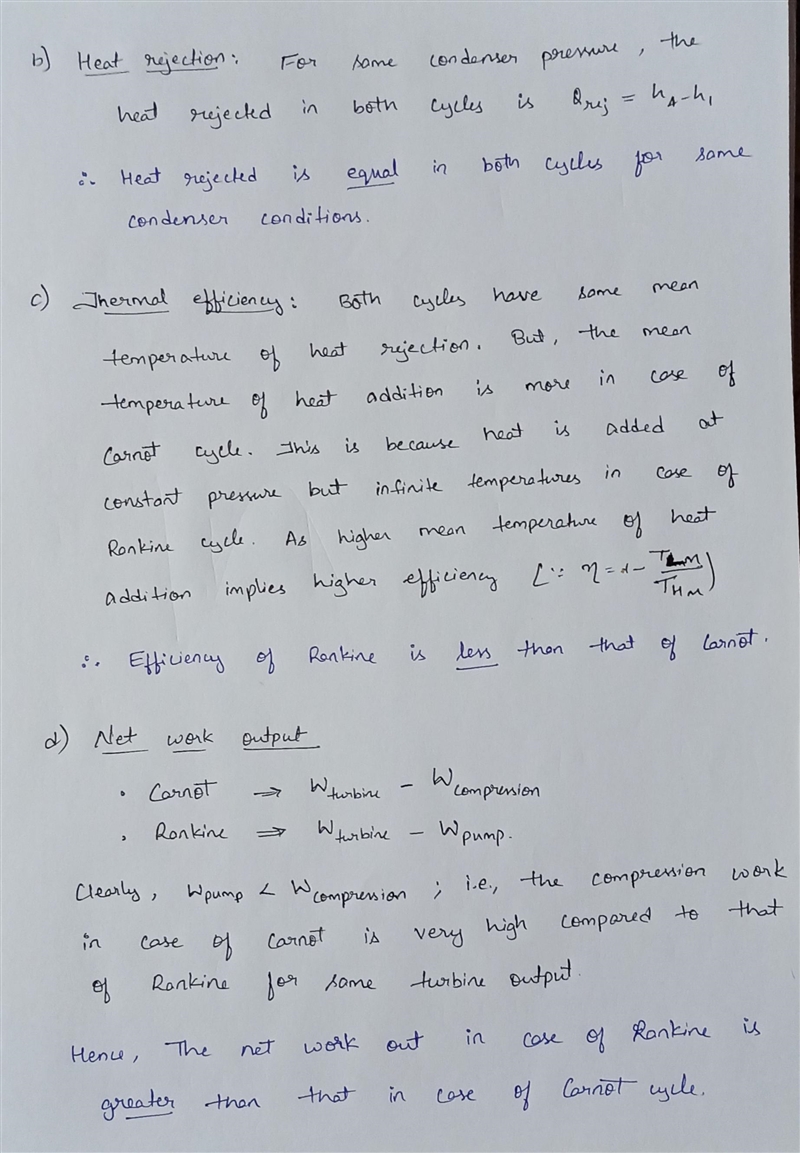 b) Heat rejection: For same condenser pressure, the
heat rejected in both cycles is Qrej = h4-h1
∴ Heat rejected is equal in both cycles for same
condenser conditions.
c) Thermal efficiency: Both cycles have same mean
temperature of heat rejection. But, the mean
temperature of heat addition is more in case of
Carnot cycle. This is because heat is added at
constant pressure but infinite temperatures in case of
Rankine cycle. As higher mean temperature of heat
addition implies higher efficiency (∵ η = 1 - TLM/THM)
∴ Efficiency of Rankine is less than that of Carnot.
d) Net work output
• Carnot ⇒ Wturbine - Wcompression
• Rankine ⇒ Wturbine - Wpump.
Clearly, Wpump < Wcompression ; i.e., the compression work
in case of Carnot is very high compared to that
of Rankine for same turbine output.
Hence, The net work out in case of Rankine is
greater than that in case of Carnot cycle.